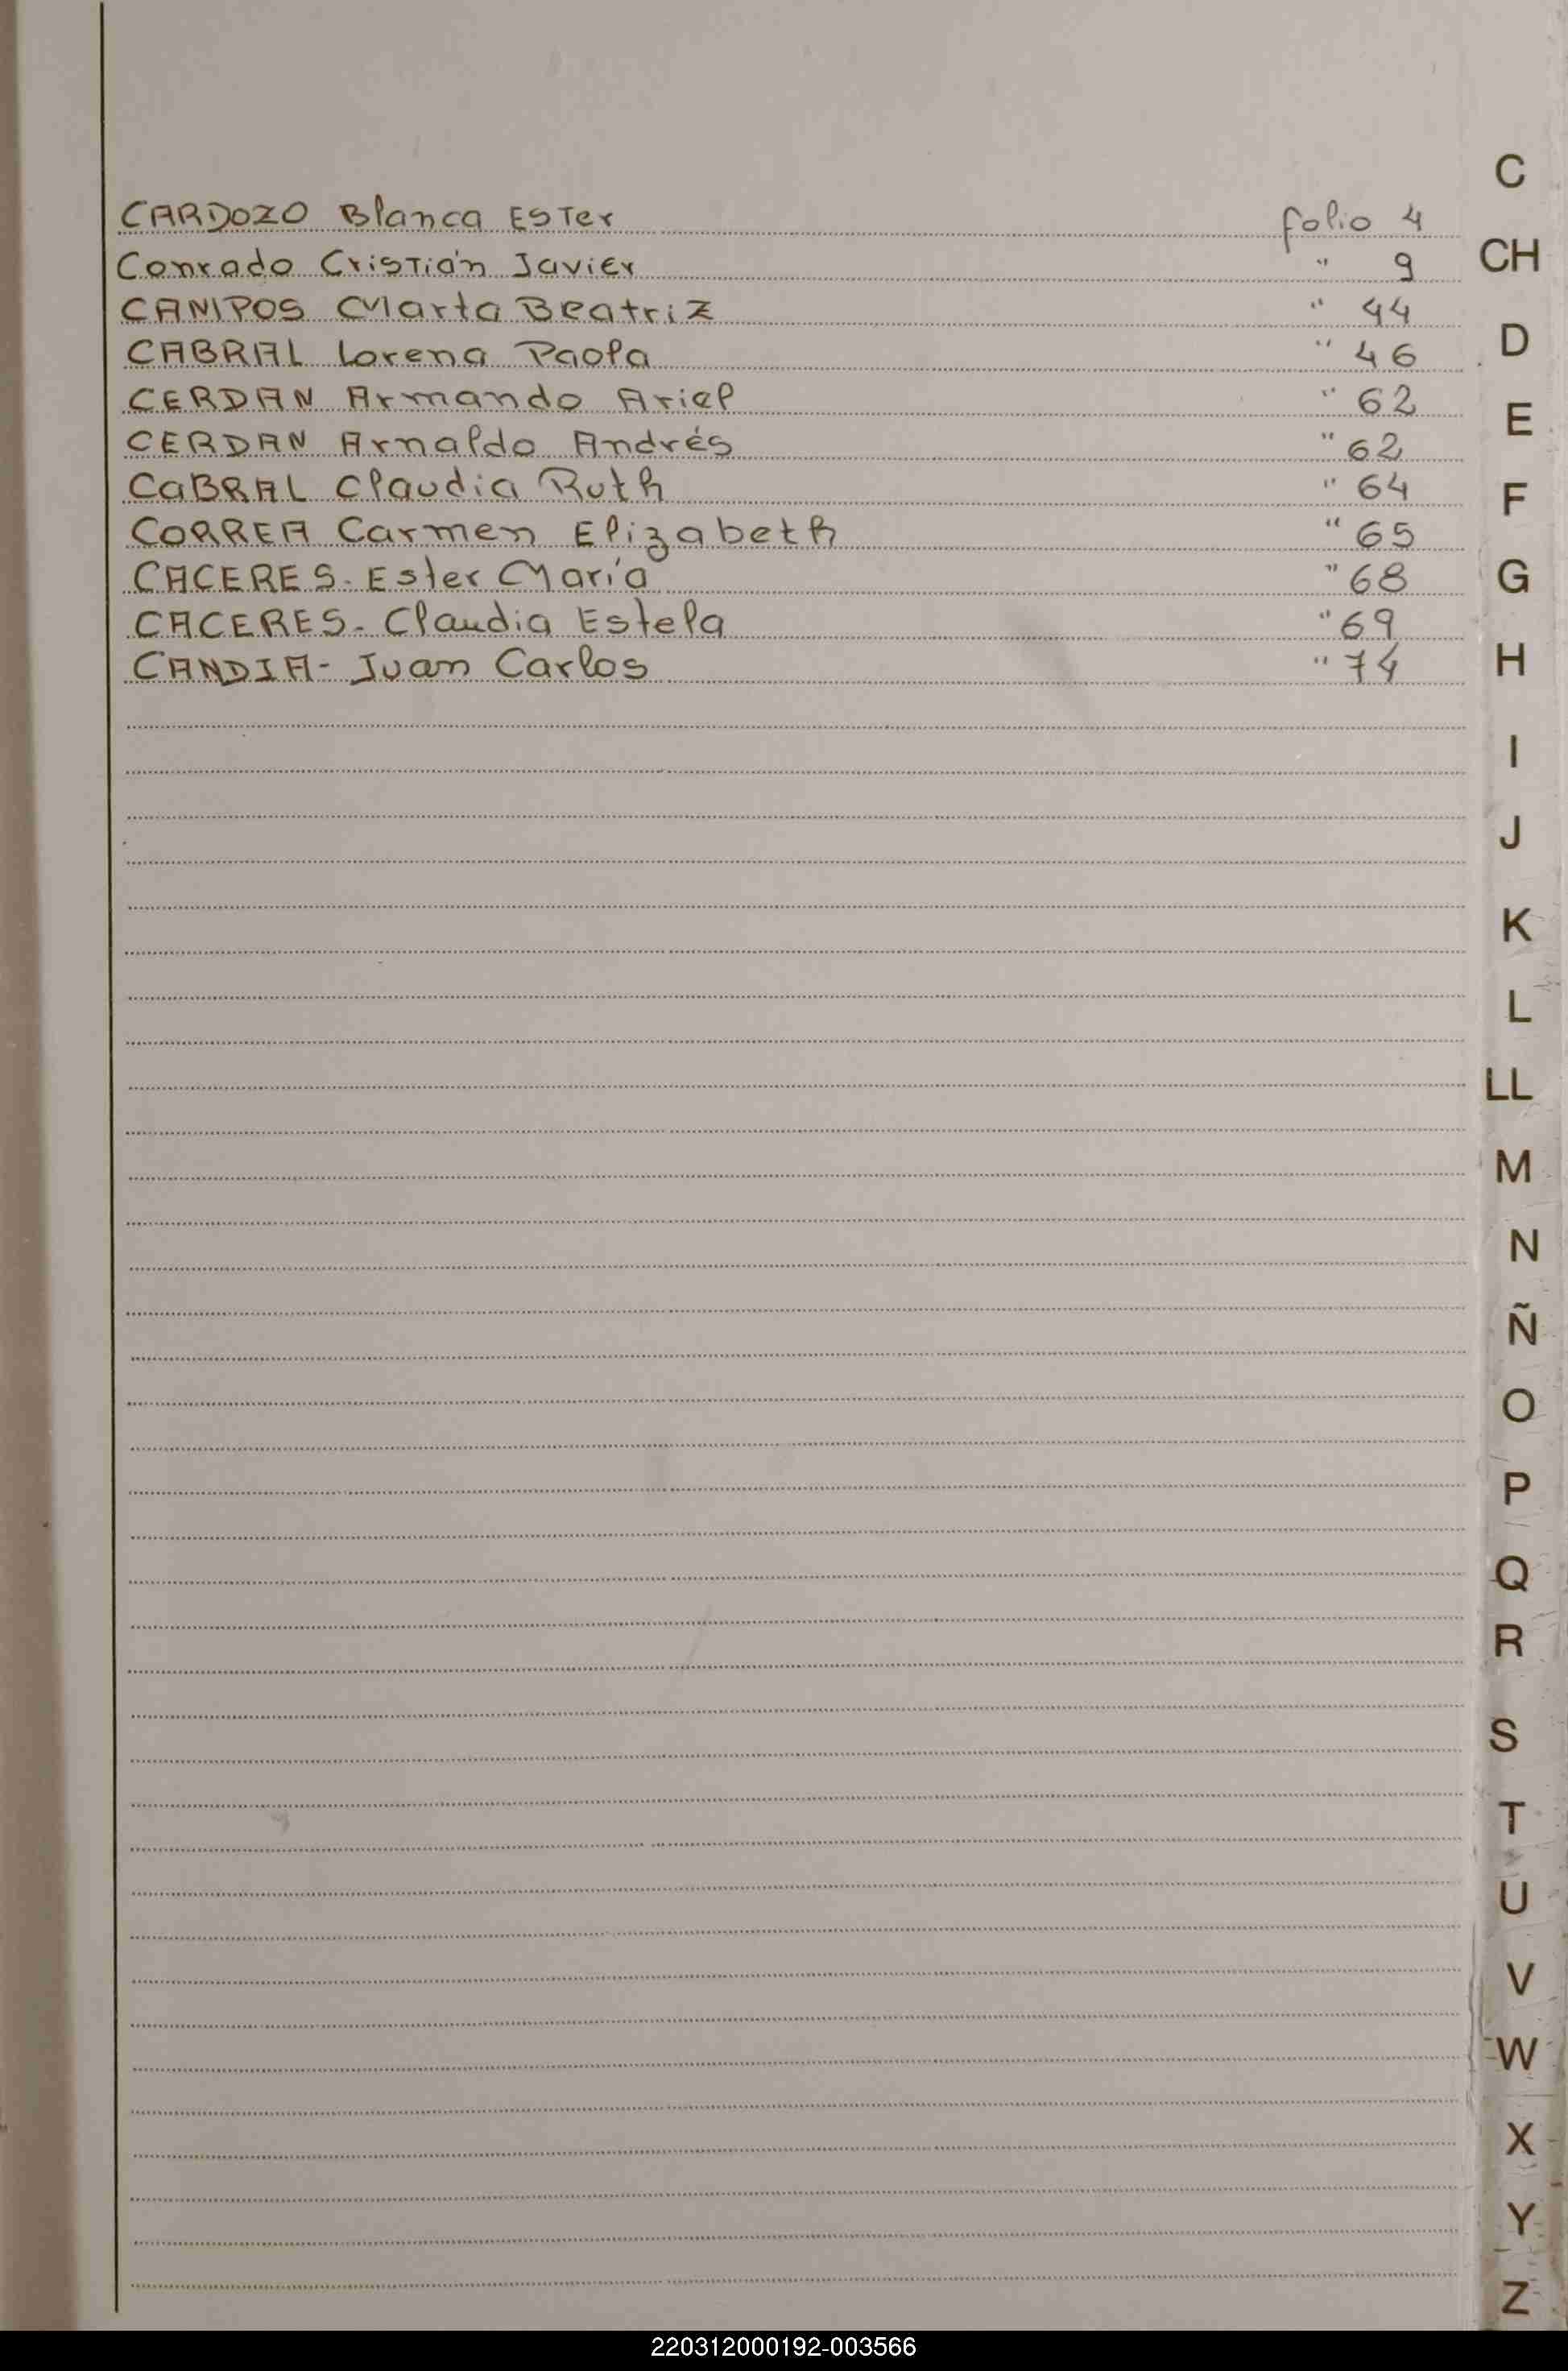 CARDOZO Blanca Ester folio 4
Conrado Cristián Javier " 9
CAMPOS Marta Beatriz " 44
CABRAL Lorena Paola " 46
CERDAN Armando Ariel " 62
CERDAN Arnaldo Andrés " 62
CaBRAL Claudia Ruth " 64
CORREA Carmen Elizabeth " 65
CACERES- Ester María " 68
CACERES- Claudia Estela " 69
CANDIA- Juan Carlos " 74
C
CH
D
E
F
G
H
I
J
K
L
LL
M
N
Ñ
O
P
Q
R
S
T
U
V
W
X
Y
Z
220312000192-003566